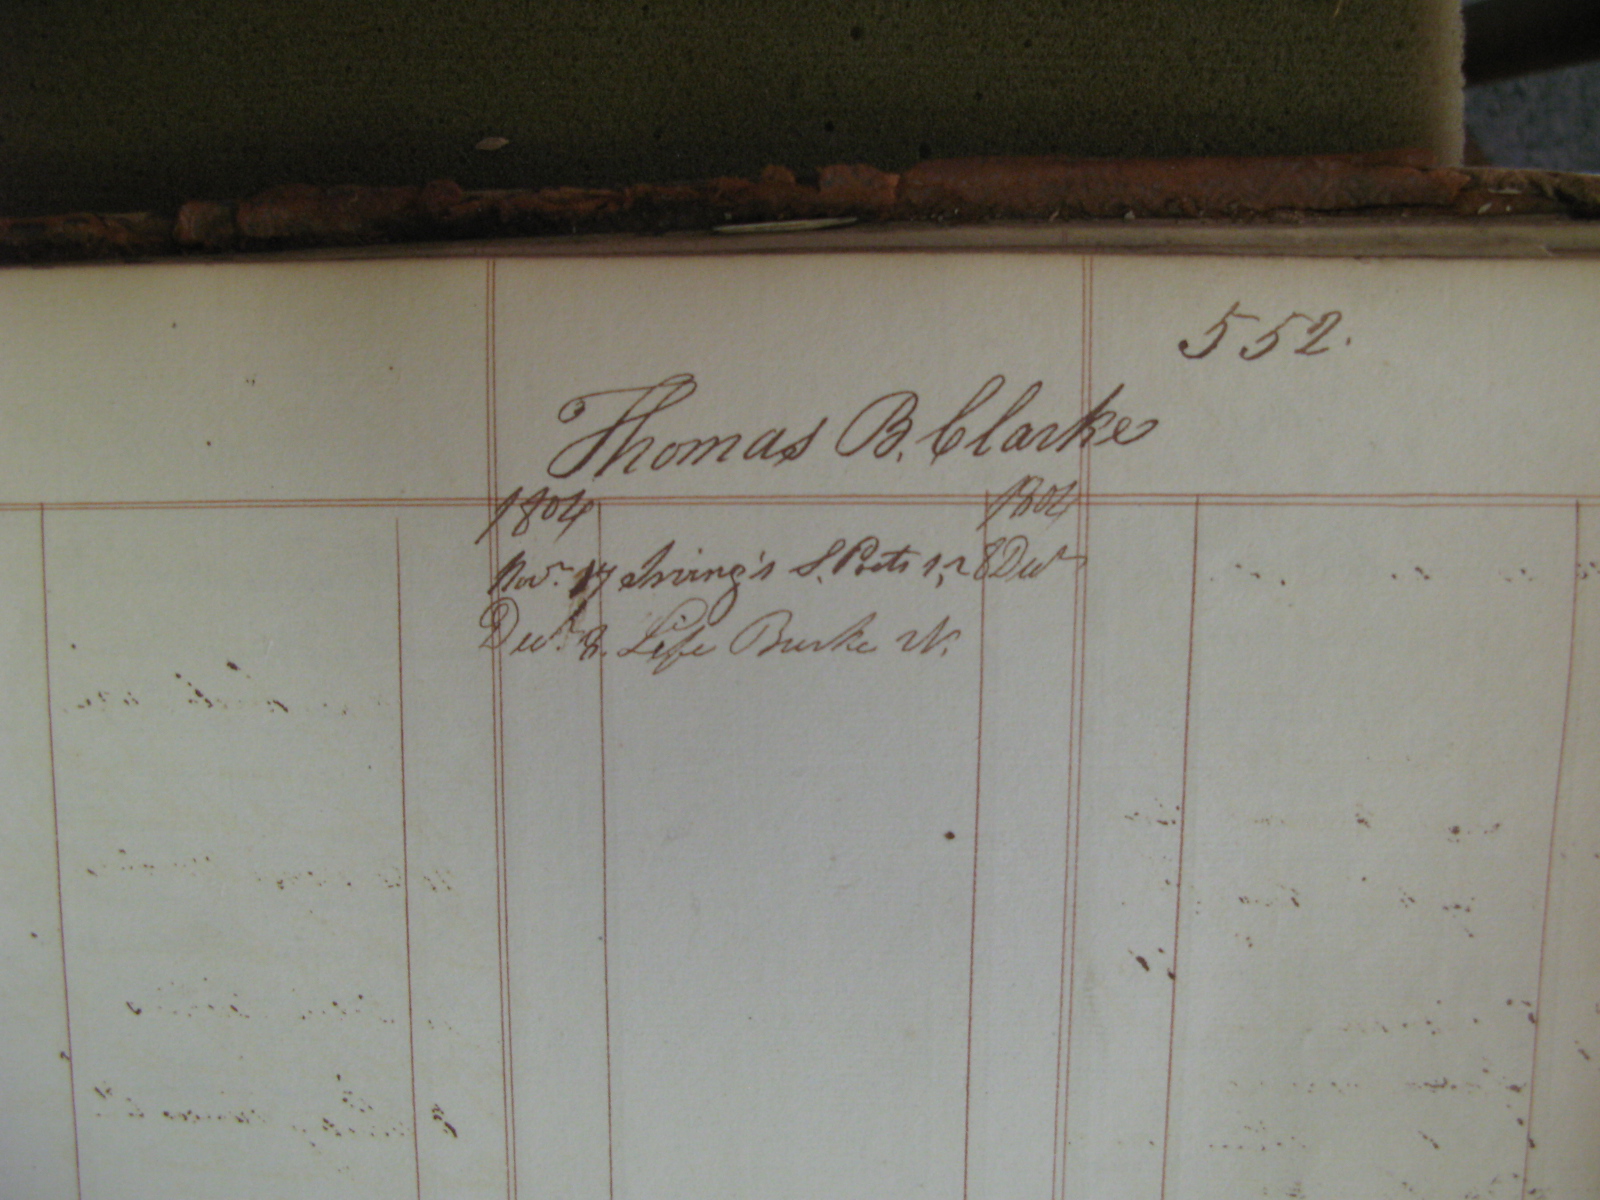 552.
Thomas B. Clarke
1804 1804
Novr. 17 Irving's S. Poets 1, 2 8 Decr
Decr. 8. Life Burke